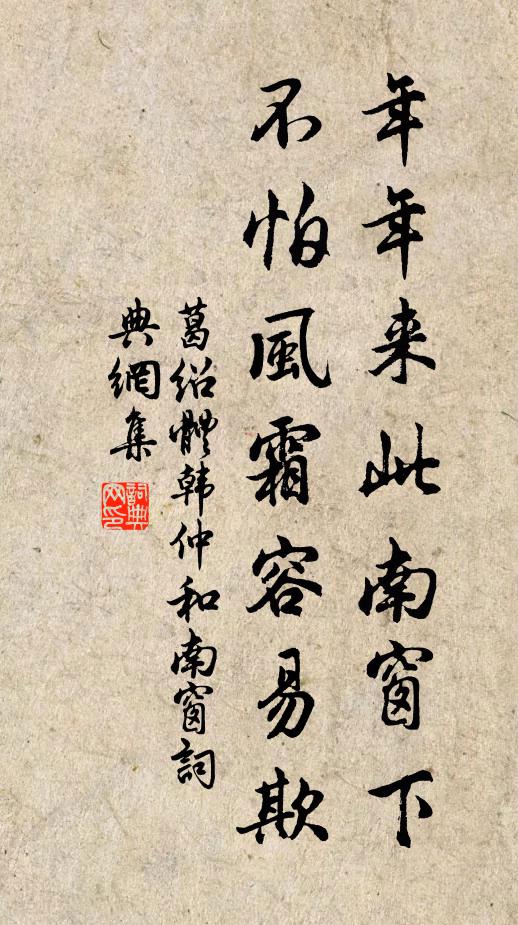 年年来此南窗下
不怕風霜容易欺
葛绍體韩仲和南窗詞
典網集
詞典
网印